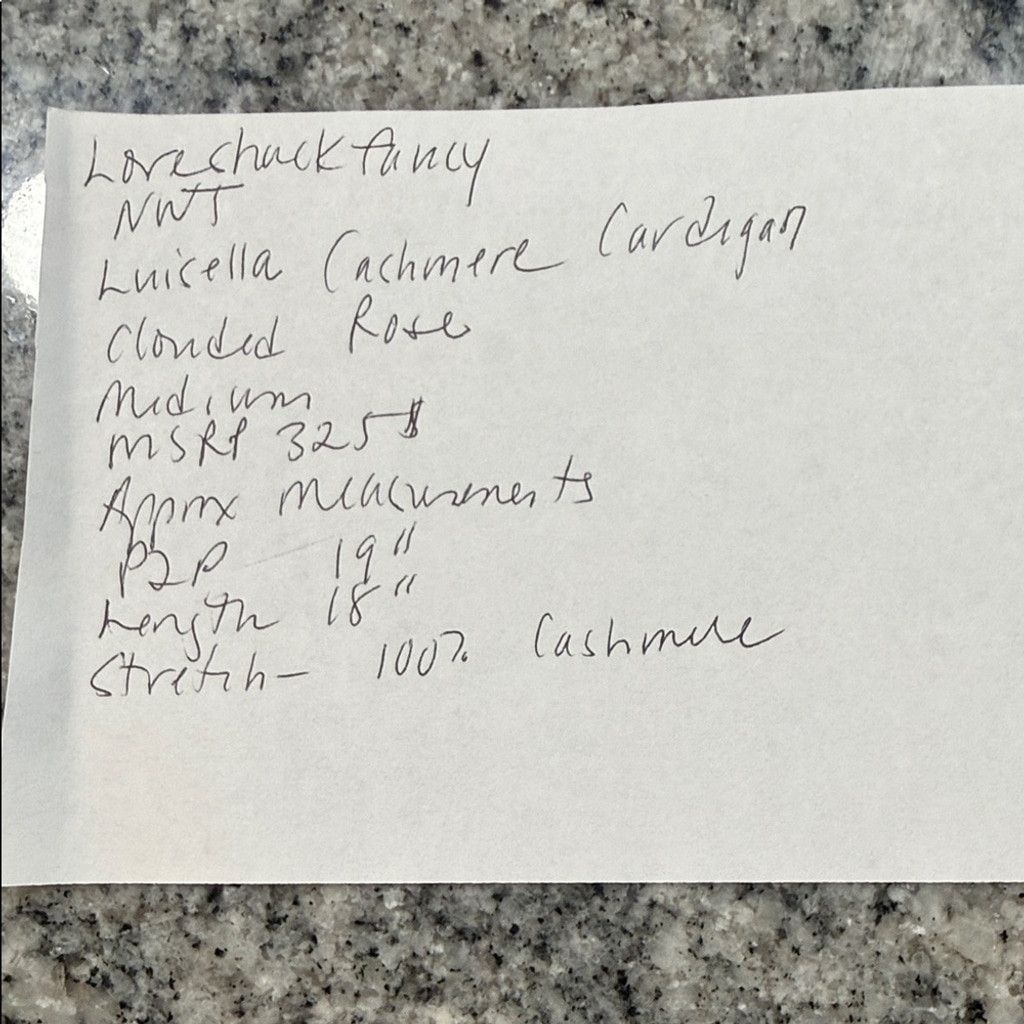 Loveshackfancy
NWT
Luisella Cashmere Cardigan
Clouded Rose
Medium
MSRP 325$
Approx measurements
P2P 19"
Length 18"
Stretch- 100% Cashmere